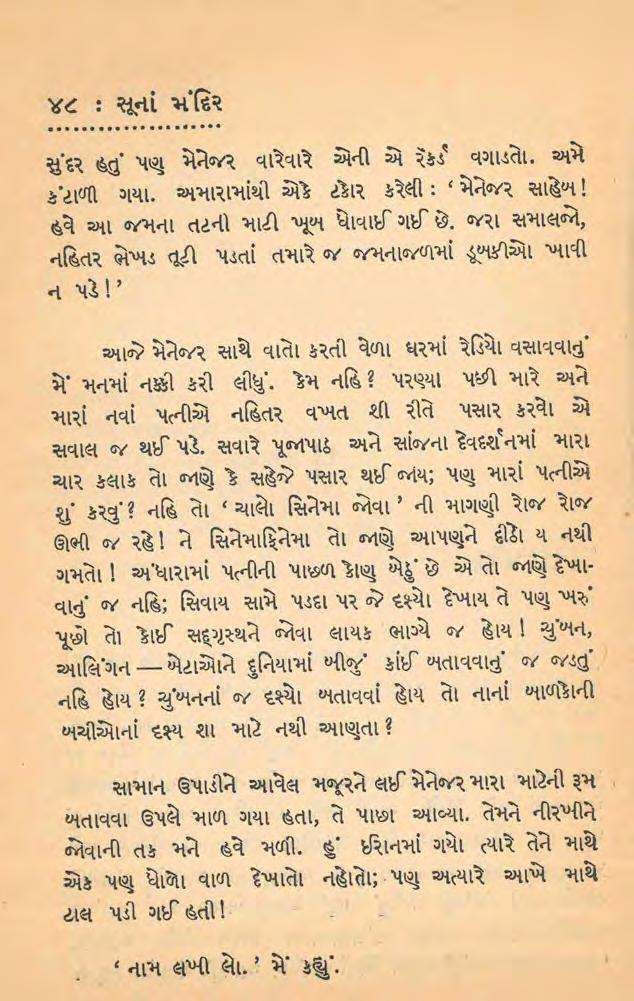 ૪૮ : સૂનાં મંદિર
સુંદર હતું પણ મેનેજર વારેવારે એની એ રૅકર્ડ વગાડતો. અમે
કંટાળી ગયા. અમારામાંથી એકે ટકોર કરેલી : ‘ મેનેજર સાહેબ !
હવે આ જમના તટની માટી ખૂબ ધોવાઈ ગઈ છે. જરા સમાલજો,
નહિતર ભેખડ તૂટી પડતાં તમારે જ જમનાજળમાં ડૂબકીઓ ખાવી
ન પડે ! ’
આજે મેનેજર સાથે વાતો કરતી વેળા ઘરમાં રેડિયો વસાવવાનું
મેં મનમાં નક્કી કરી લીધું. કેમ નહિ ? પરણ્યા પછી મારે અને
મારાં નવાં પત્નીએ નહિતર વખત શી રીતે પસાર કરવો એ
સવાલ જ થઈ પડે. સવારે પૂજાપાઠ અને સાંજના દેવદર્શનમાં મારા
ચાર કલાક તો જાણે કે સહેજે પસાર થઈ જાય; પણ મારાં પત્નીએ
શું કરવું ? નહિ તો ‘ ચાલો સિનેમા જોવા ’ ની માગણી રોજ રોજ
ઊભી જ રહે ! ને સિનેમાફિનેમા તો જાણે આપણને દીઠો ય નથી
ગમતો ! અંધારામાં પત્નીની પાછળ કોણ બેઠું છે એ તો જાણે દેખા-
વાનું જ નહિ; સિવાય સામે પડદા પર જે દૃશ્યો દેખાય તે પણ ખરું
પૂછો તો કોઈ સદ્ગૃસ્થને જોવા લાયક ભાગ્યે જ હોય ! ચુંબન,
આલિંગન — બેટાઓને દુનિયામાં બીજું કાંઈ બતાવવાનું જ જડતું
નહિ હોય ? ચુંબનનાં જ દૃશ્યો બતાવવાં હોય તો નાનાં બાળકોની
બચીઓનાં દૃશ્ય શા માટે નથી આણતા ?
સામાન ઉપાડીને આવેલ મજૂરને લઈ મેનેજર મારા માટેની રૂમ
બતાવવા ઉપલે માળ ગયા હતા, તે પાછા આવ્યા. તેમને નીરખીને
જોવાની તક મને હવે મળી. હું ઈરાનમાં ગયો ત્યારે તેને માથે
એક પણ ધોળો વાળ દેખાતો નહોતો; પણ અત્યારે આખે માથે
ટાલ પડી ગઈ હતી !
‘ નામ લખી લો. ’ મેં કહ્યું.